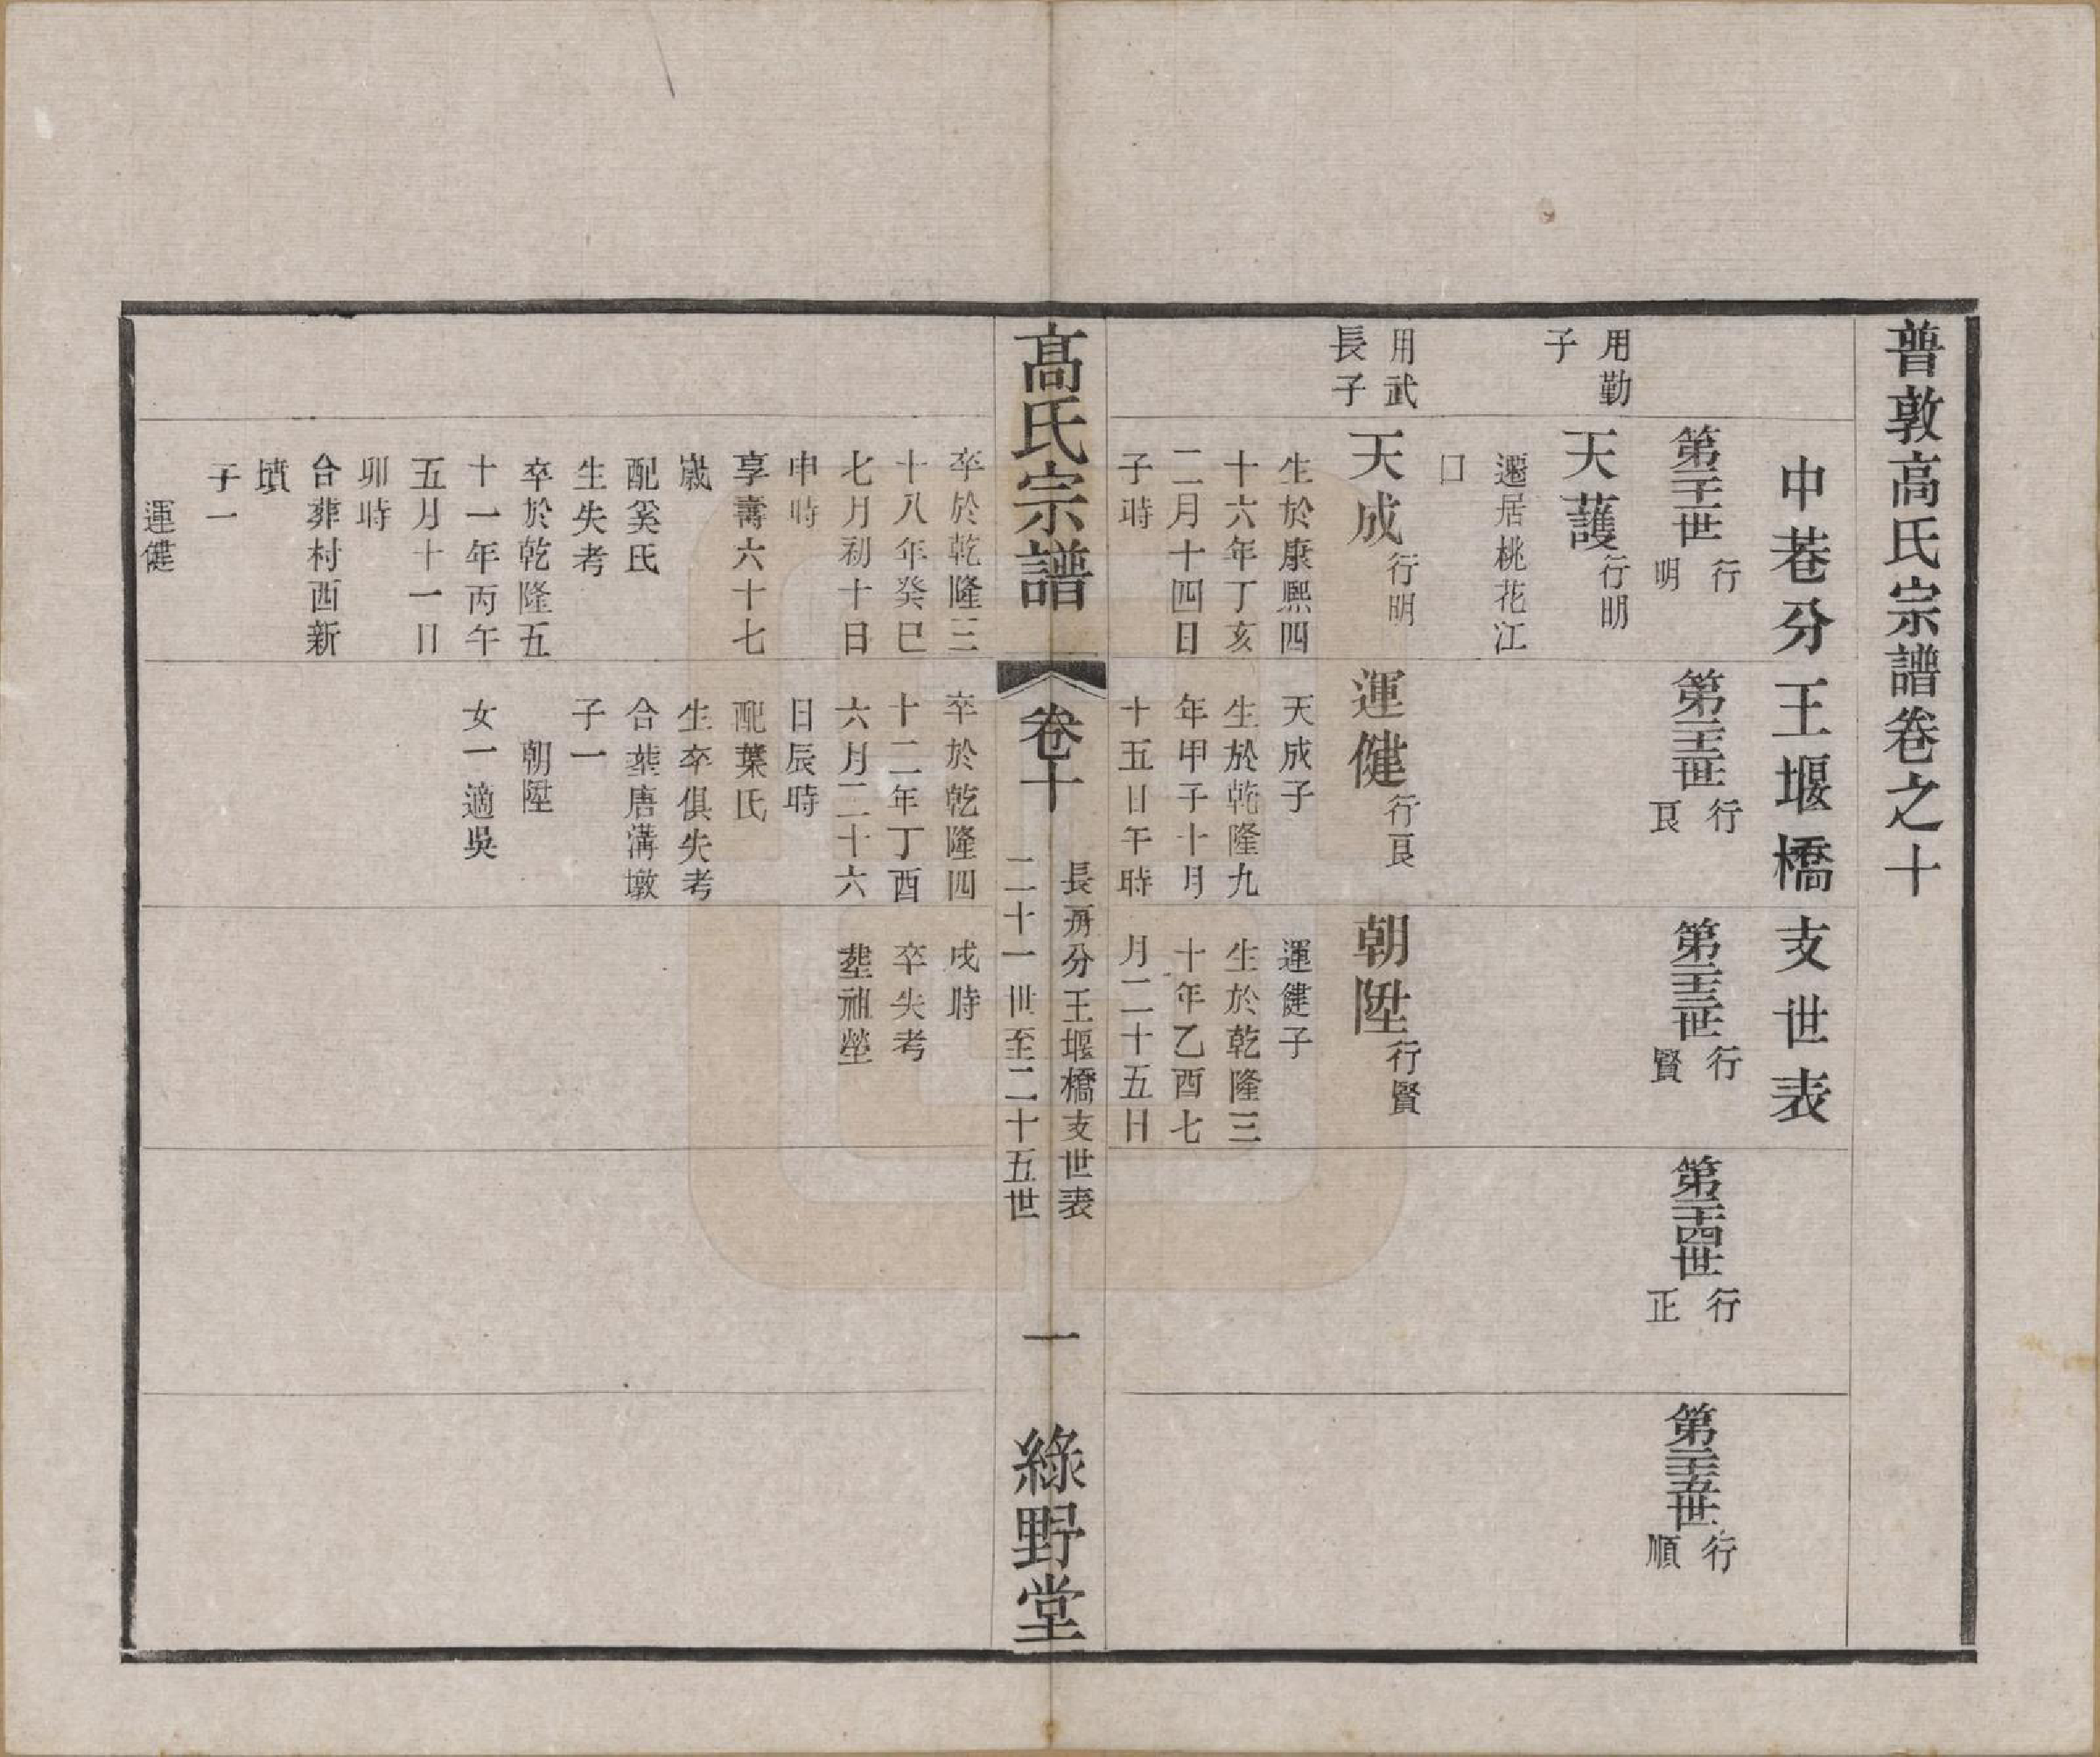 普敦高氏宗譜卷之十
中巷分王堰橋支世表
第二十一世 行明
第二十二世 行艮
第二十三世 行賢
第二十四世 行正
第二十五世 行順
用勤
子
天護 行明
遷居桃花江
口
用武
長子
天成 行明
生於康熙四
十六年丁亥
二月十四日
子時
運健 行艮
天成子
生於乾隆九
年甲子十月
十五日午時
朝陞 行賢
運健子
生於乾隆三
十年乙酉七
月二十五日
高氏宗譜
卷十
長房分王堰橋支世表
二十一世至二十五世
一
綠野堂
卒於乾隆三
十八年癸巳
七月初十日
申時
享壽六十七
歲
配奚氏
生失考
卒於乾隆五
十一年丙午
五月十一日
卯時
合葬村西新
墳
子一
運健
卒於乾隆四
十二年丁酉
六月二十六
日辰時
配葉氏
生卒俱失考
合塟唐溝墩
子一
朝陞
女一適吳
戌時
卒失考
塟祖塋